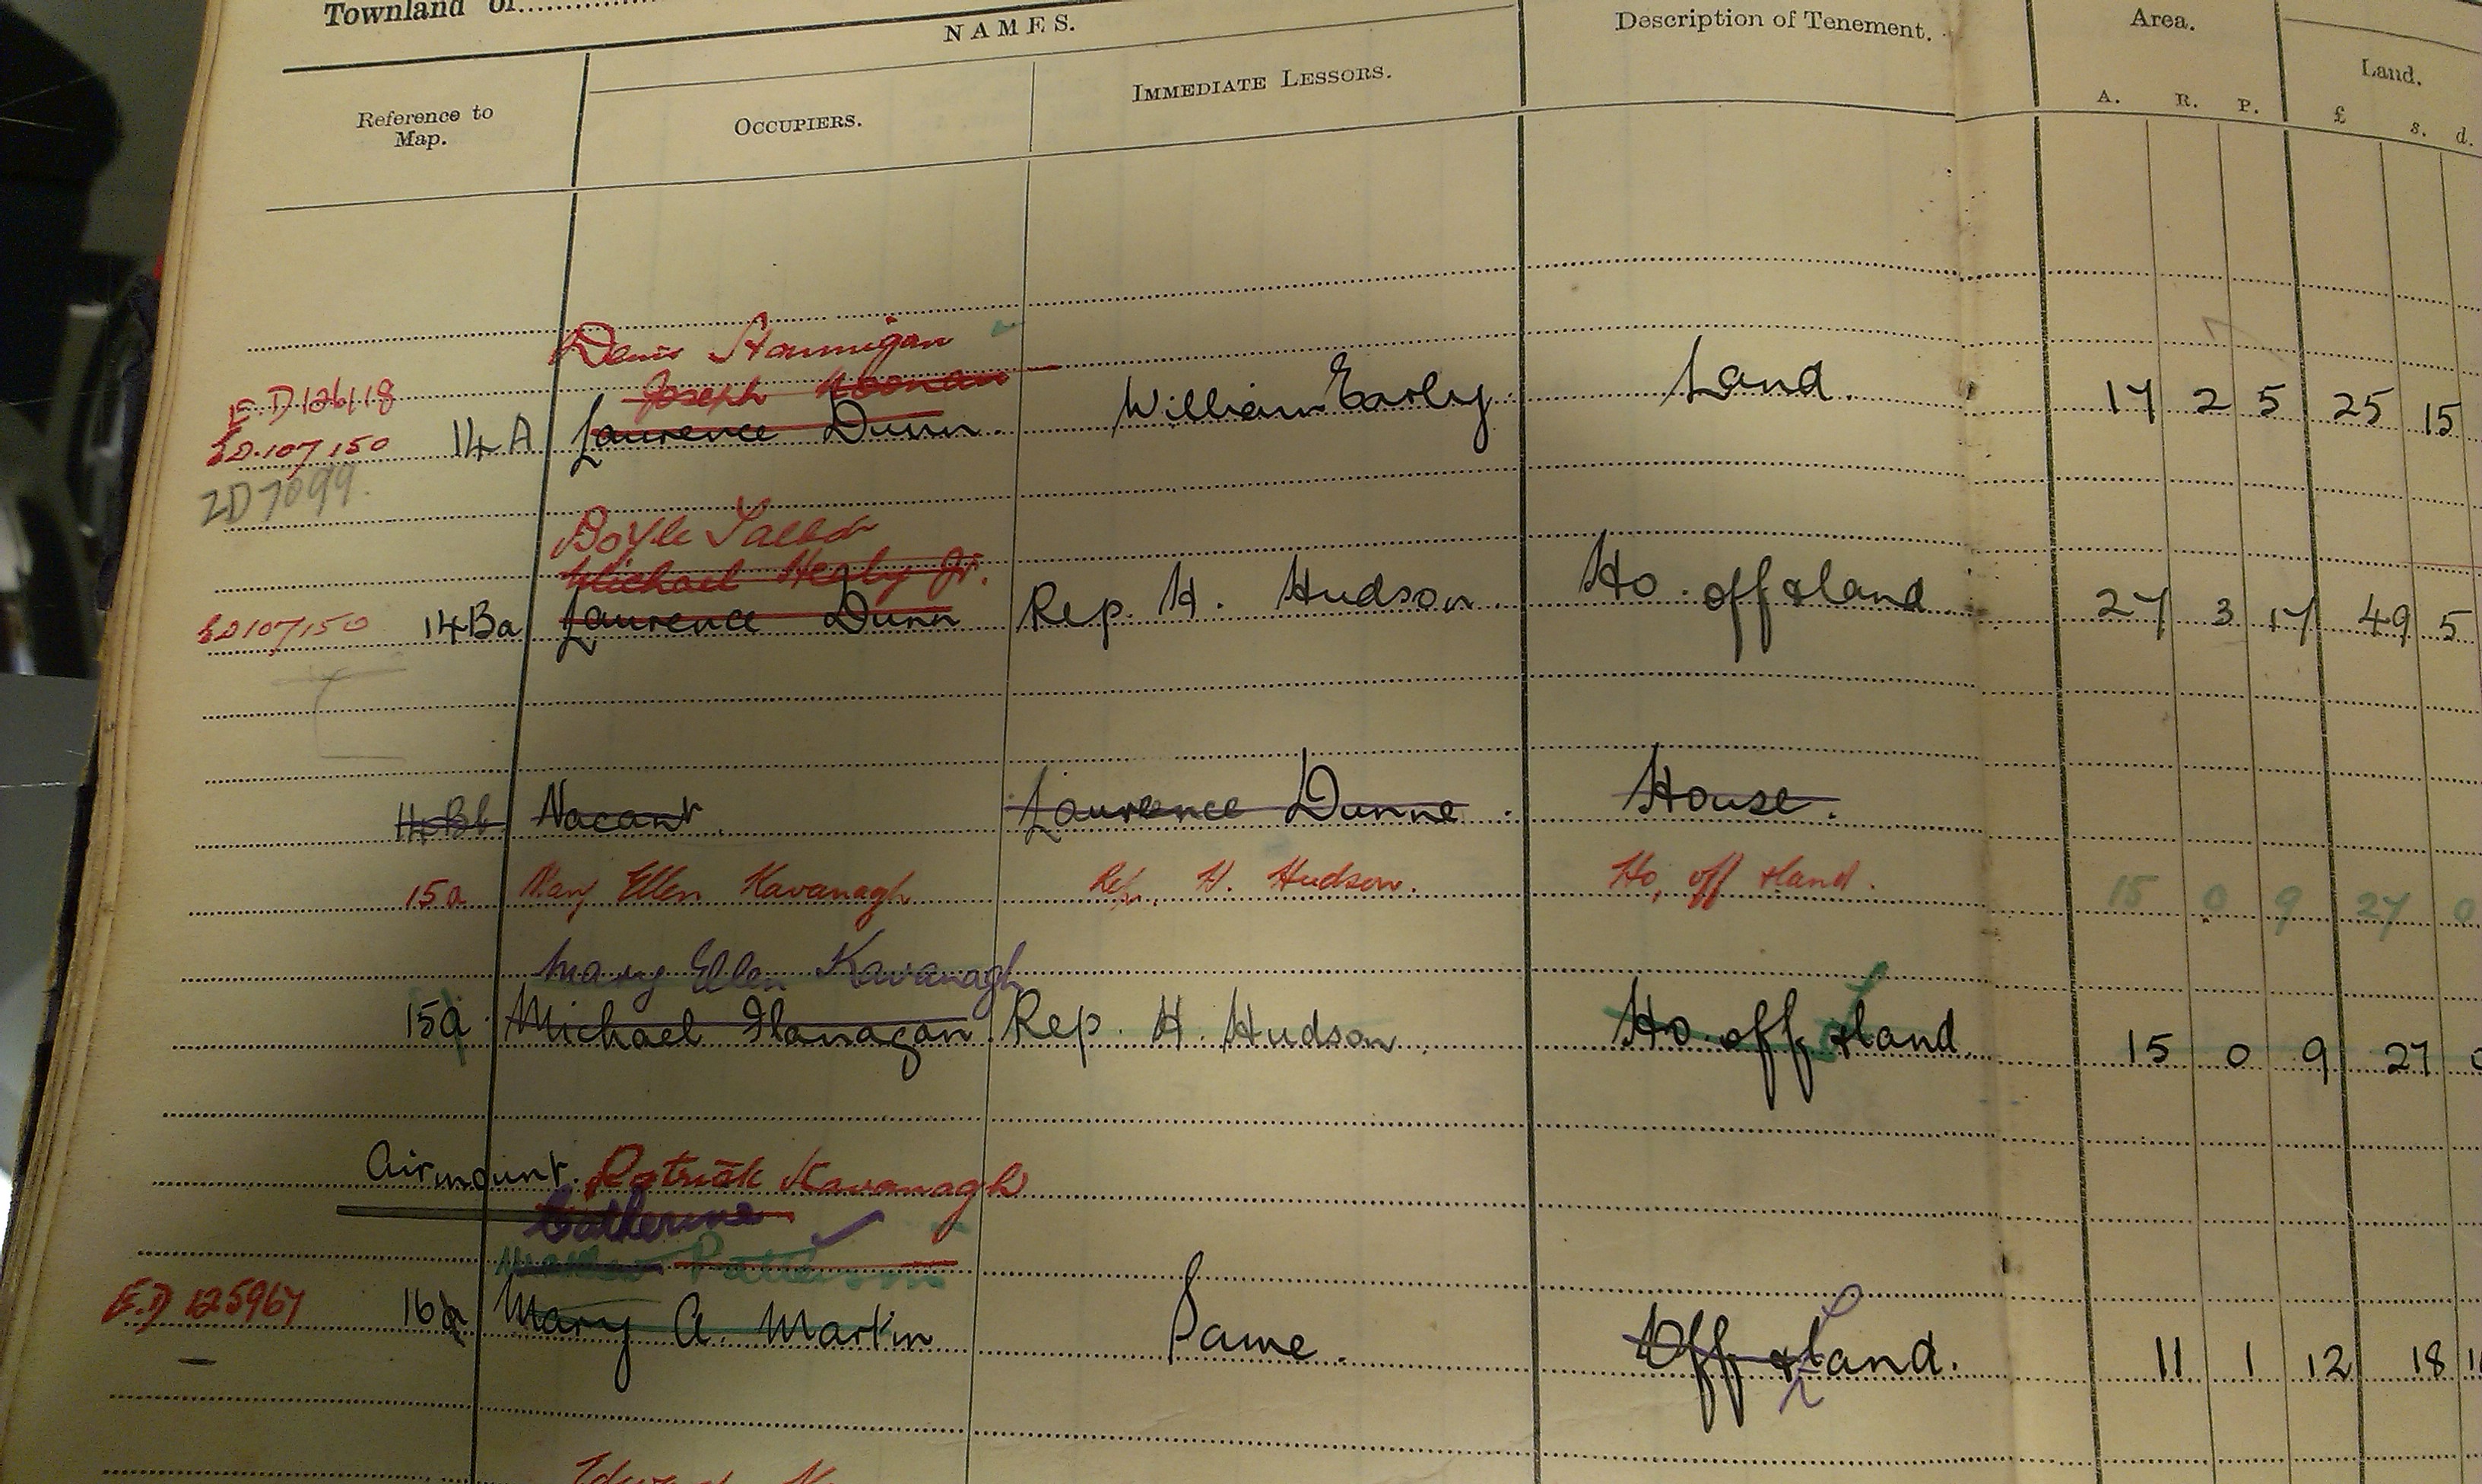 Townland of
NAMES.
Description of Tenement.
Area.
Land.
Reference to Map.
OCCUPIERS.
IMMEDIATE LESSORS.
A. R. P. £ s. d.
Denis Hannigan
E.D 126118 Joseph Noonan
E.D. 107150 14A Laurence Dunn. William Early. Land. 17 2 5 25 15
2D7099.
Boyle Talbot
Michael Healy Jr.
ED107150 14Ba Laurence Dunn Rep. H. Hudson. Ho. off & land. 27 3 17 49 5
14Bb Vacant. Laurence Dunne. House.
15a Mary Ellen Kavanagh Rep. H. Hudson. Ho, off & land. 15 0 9 27 0
Mary Ellen Kavanagh
15a Michael Flanagan Rep. H. Hudson. Ho. off & land. 15 0 9 27 0
Airmount. Patrick Kavanagh
Catherine
Matthew Patterson
E.D 125967 16a Mary A. Martin Same. Off & Land. 11 1 12 18
Edward